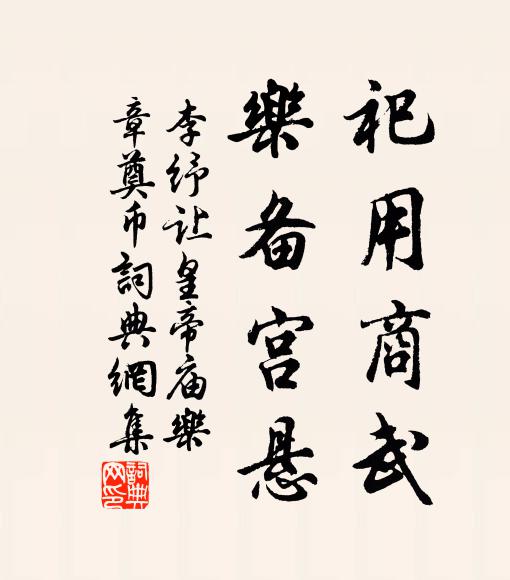 祀用商武
樂备宫悬
李纾让皇帝庙樂
章奠币詞典網集
詞典
网印